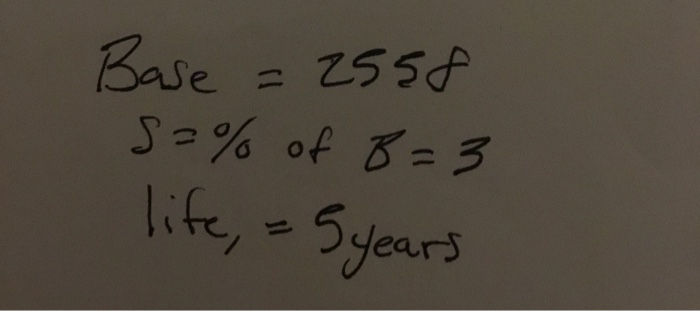 Base = 2558
S = % of B = 3
life, = 5 years